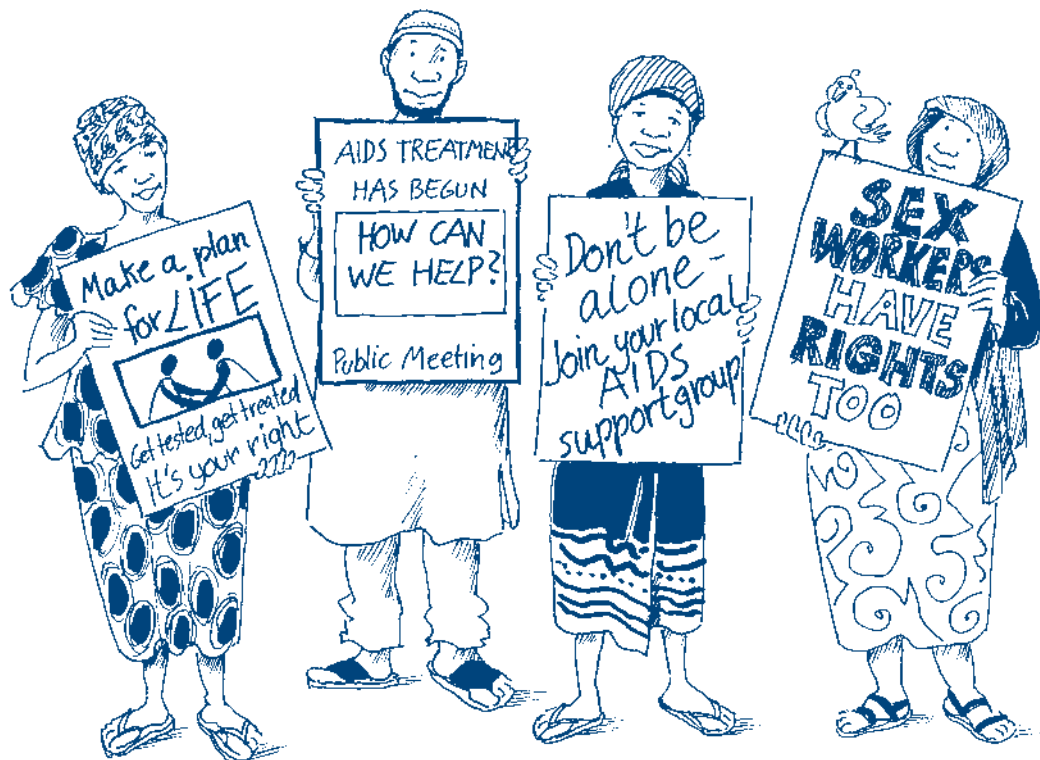 Make a plan
for LiFE
Get tested, get treated
it's your right
AIDS TREATMENT
HAS BEGUN
HOW CAN
WE HELP?
Public Meeting
Don't be
alone -
Join your local
AIDS
support group
SEX
WORKERS
HAVE
RIGHTS
TOO